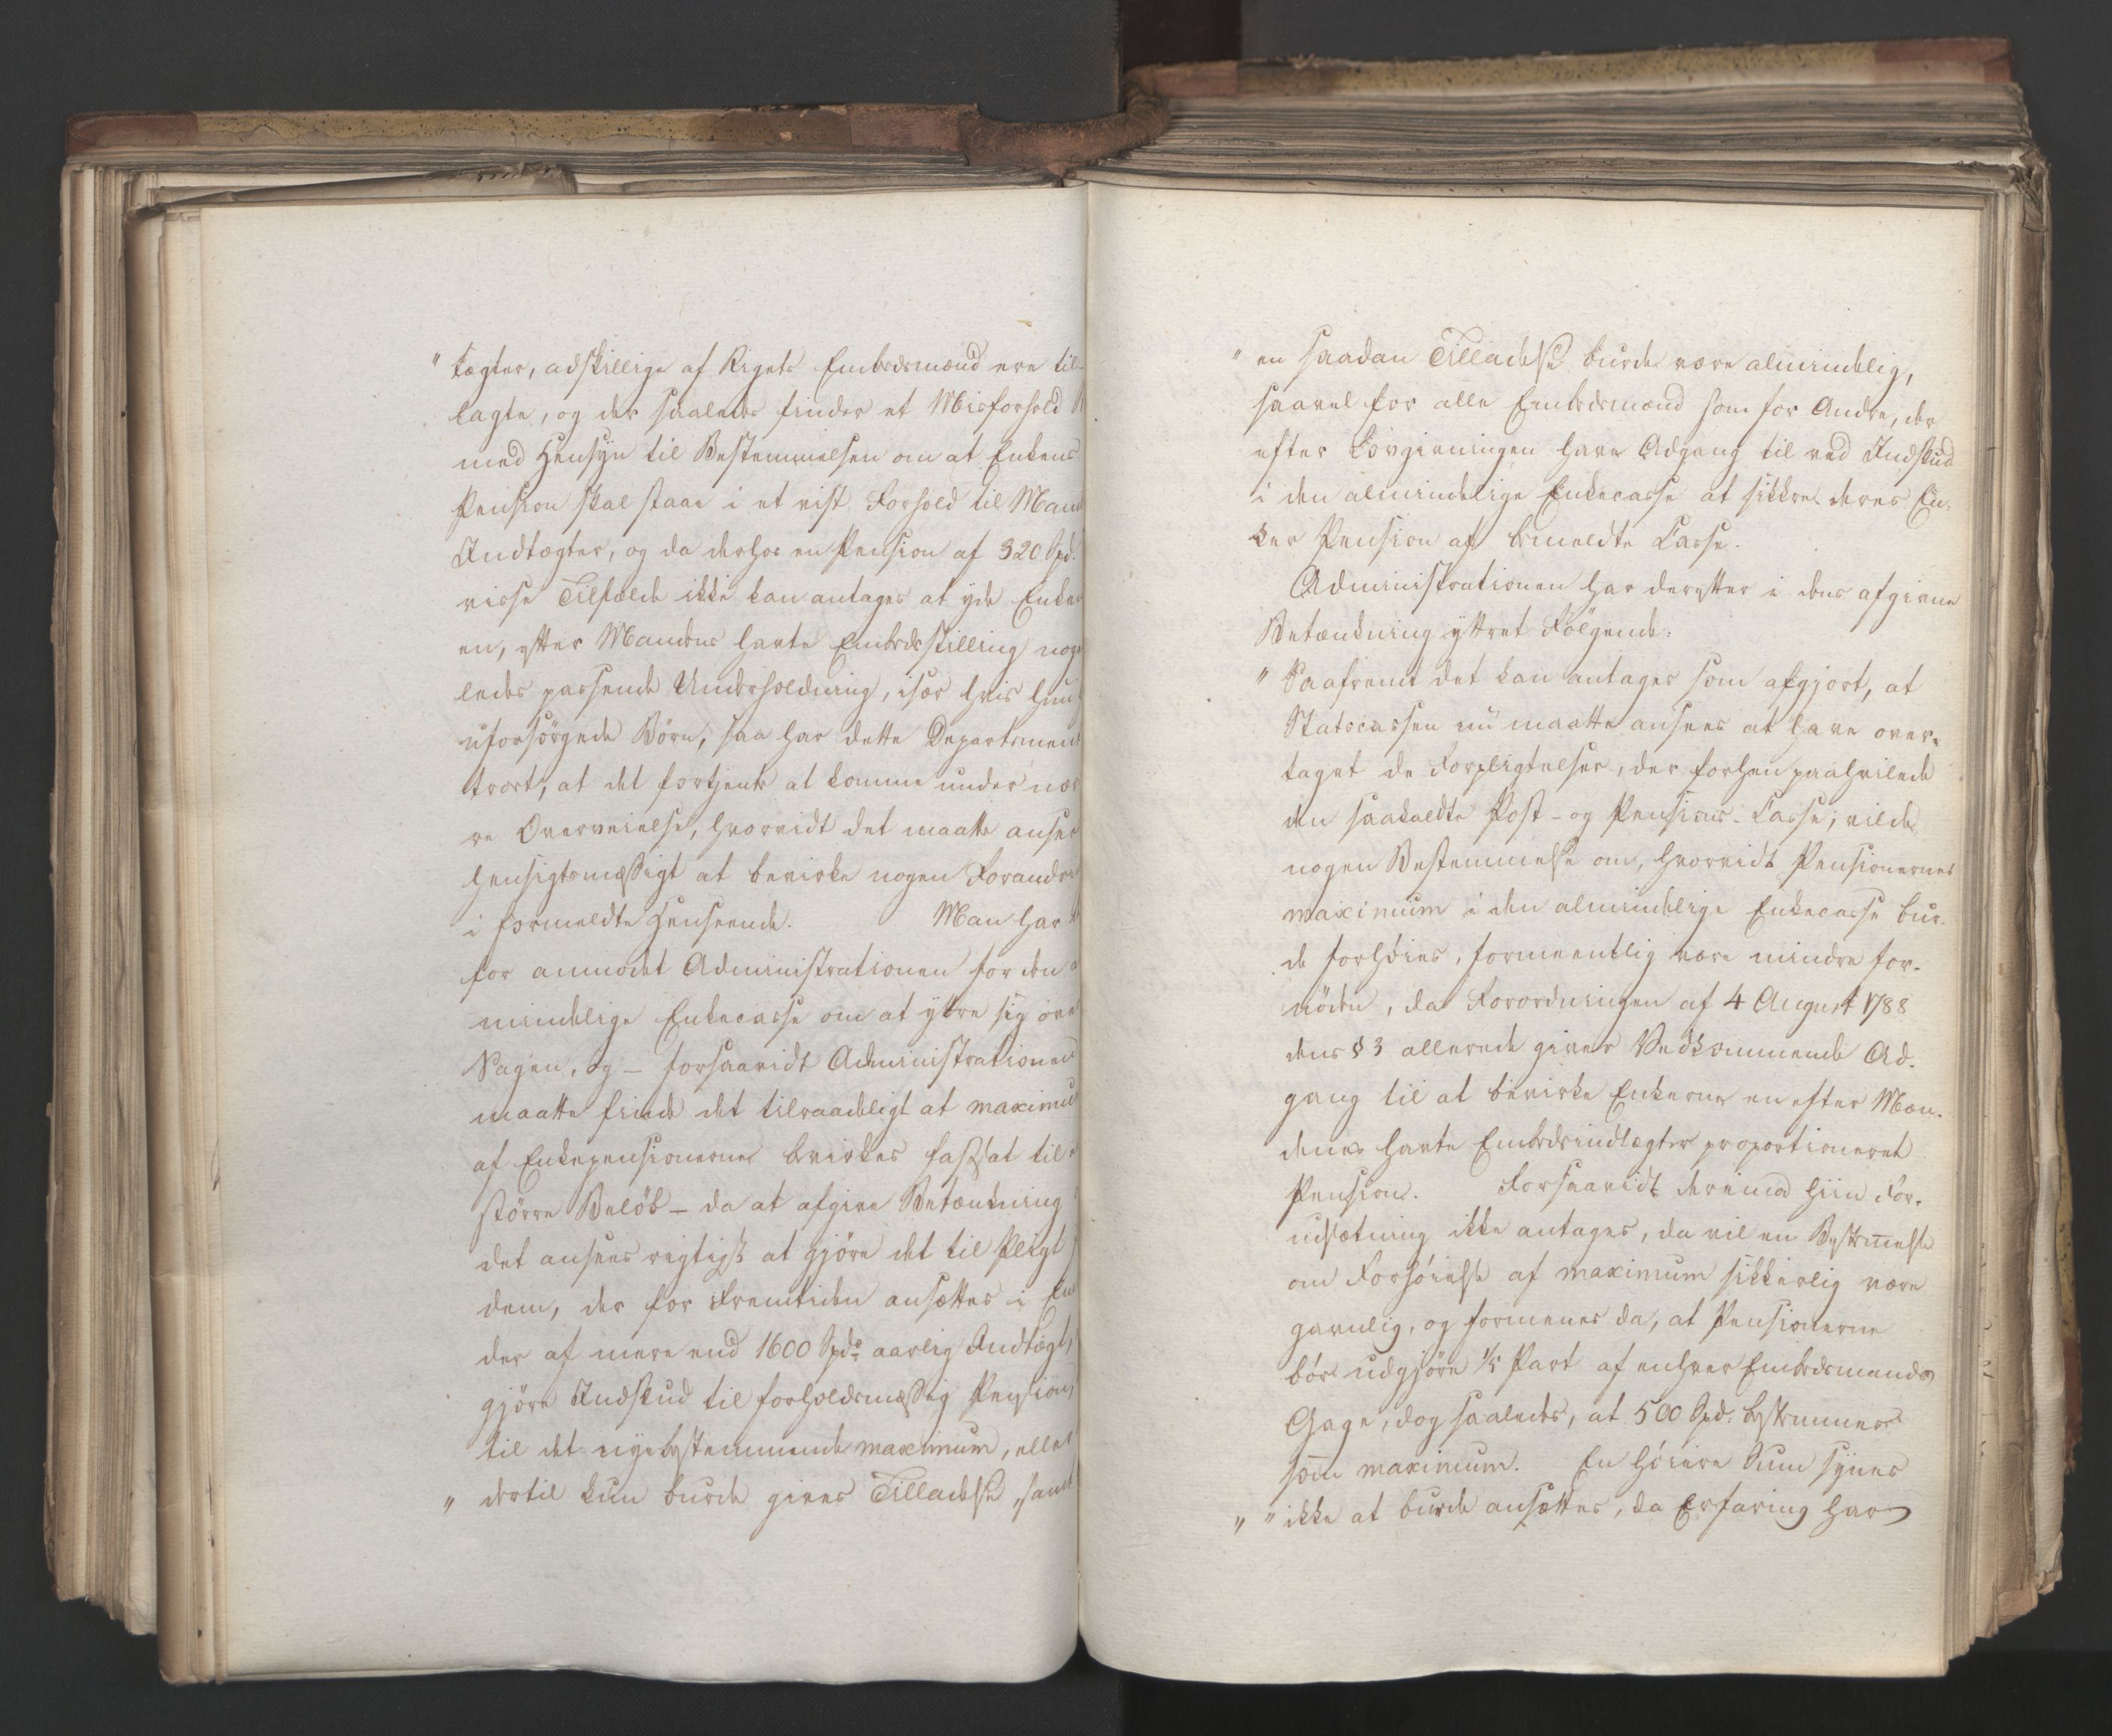 " tægter, adskillige af Rigets Embedsmænd ere til-
lagte, og der saaledes finder et Misforhold
med Hensyn til Bestemmelsen om at Enkens
Pension skal staae i et vist Forhold til Mand
Indtægter, og da derhos en Pension af 320 Spd.
visse Tilfælde ikke kan antages at yde Enke
en, efter Mandens havte Embedsstilling nog
ledes passende Underholdning, især hvis hun
uforsörgede Börn, saa har dette Departement
troet, at det fortjente at komme under nær
re Overveielse, hvorvidt det maatte anse
hensigtsmæssigt at bevirke nogen Forandri
i formeldte Henseende. Man har
for anmodet Administrationen for den a
mindelige Enkecasse om at yttre sig ove
Sagen, og – forsaavidt Administrationen
maatte finde det tilraadeligt at maximu
af Enkepensionerne bevirkes fastsat til
större Belöb – da at afgive Betænkning
det ansees rigtigst at gjöre det til Pligt
dem, der for Fremtiden ansættes i Em
der af mere end 1600 Spd. aarlig Indtægt,
gjöre Indskud til forholdsmæssig Pension,
til det nye bestemmende maximum, eller
" dertil kun burde gives Tilladelse, samt
" en saadan Tilladelse burde være almindelig,
saavel for alle Embedsmænd som for Andre, der
efter Lovgivningen have Adgang til ved Indskud
i den almindelige Enkecasse at sikkre deres En-
ker Pension af bemeldte Casse.
Administrationen har derefter i dens afgivne
Betænkning yttret Fölgende:
" Saafremt det kan antages som afgjort, at
Statscassen nu maatte ansees at have over-
taget de Forpligtelser, der forhen paahvilede
den saakaldte Post- og Pensions-Casse, vilde
nogen Bestemmelse om, hvorvidt Pensionernes
maximum i den almindelige Enkecasse bur-
de forhöies, formeentlig være mindre for-
nöden, da Forordningen af 4 August 1788
dens § 3 allerede giver Vedkommende Ad-
gang til at bevirke Enkerne en efter Mæn-
denes havte Embedsindtægter proportioneret
Pension. Forsaavidt derimod hiin For-
udsætning ikke antages, da vil en Bestem̄else
om Forhöielse af maximum sikkerlig være
gavnlig, og formenes da, at Pensionerne
bör udgjöre 1/5 Part af enhver Embedsmands
Gage, dog saaledes, at 500 Spd. bestemmes
som maximum. En höiere Sum synes
" " ikke at burde ansættes, da Erfaring har